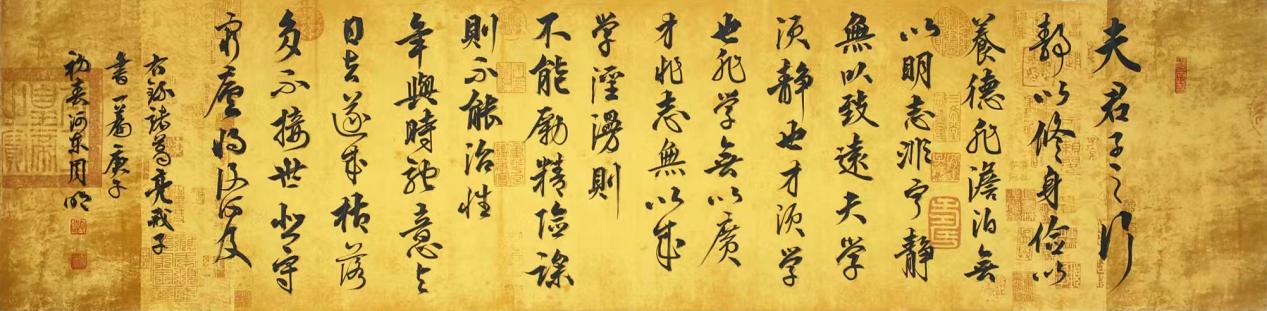 夫君子之行
靜以修身儉以
養德非澹泊無
以明志非宁靜
無以致遠夫學
須靜也才須学
也非学無以廣
才非志無以成
学淫漫則
不能励精险躁
則不能治性
年與時馳意与
日去遂成枯落
多不接世悲守
穷廬将復何及
右錄諸葛亮戒子
書一篇庚子
初夏河東周明